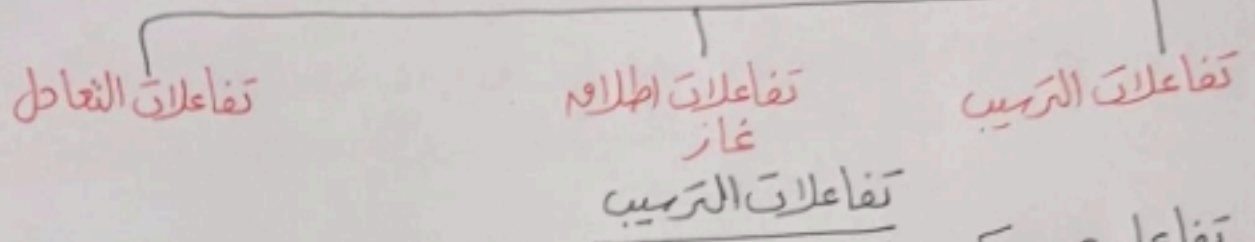 تفاعلات الترسيب
تفاعلات اطلاق
غاز
تفاعلات التعادل
تفاعلات الترسيب